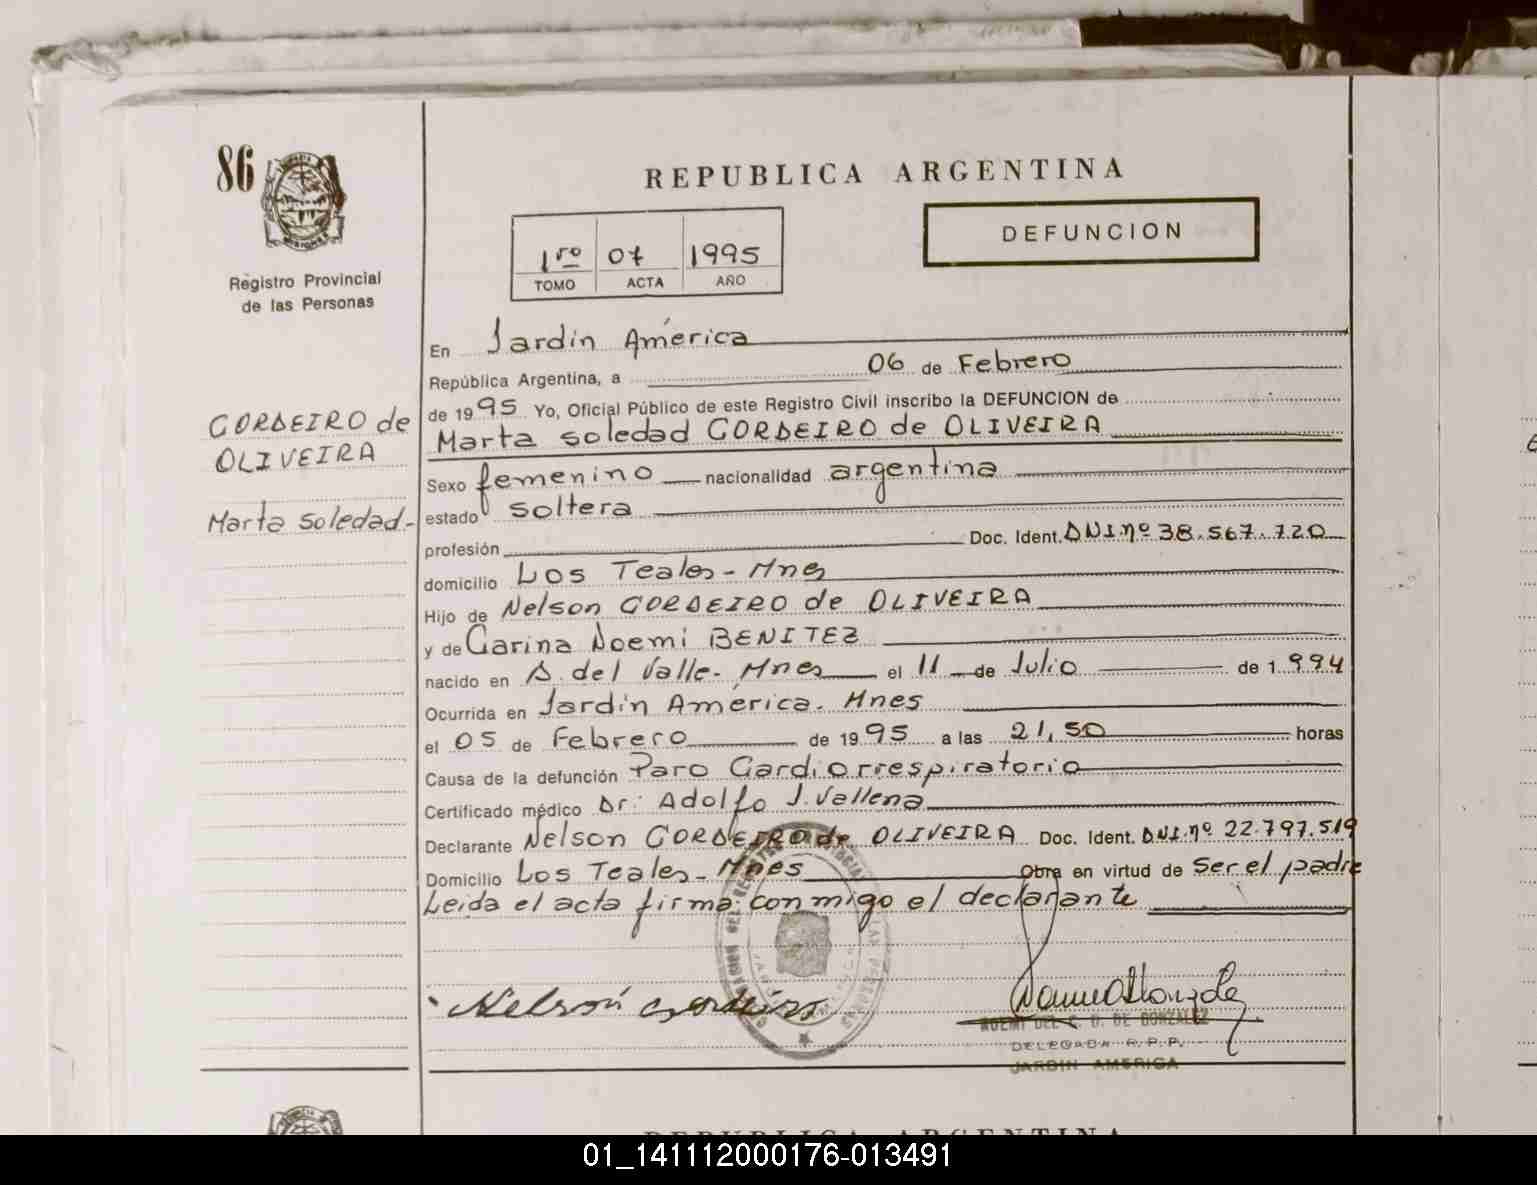 86
REPUBLICA ARGENTINA
DEFUNCION
1ro 07 1995
TOMO ACTA AÑO
Registro Provincial
de las Personas
CORDEIRO de
OLIVEIRA
Marta Soledad.-
En Jardín América
República Argentina, a 06 de Febrero
de 1995 Yo, Oficial Público de este Registro Civil inscribo la DEFUNCION de
Marta Soledad CORDEIRO de OLIVEIRA
Sexo femenino nacionalidad argentina
estado soltera
profesión Doc. Ident. DNI.nº 38.567.720
domicilio Los Teales - Mnes
Hijo de Nelson CORDEIRO de OLIVEIRA
y de Carina Noemi BENITEZ
nacido en A. del Valle. Mnes el 11 de Julio de 1.994
Ocurrida en Jardín América. Mnes
el 05 de Febrero de 1995 a las 21,50 horas
Causa de la defunción Paro Cardiorrespiratorio
Certificado médico Dr. Adolfo J. Vallena
Declarante Nelson CORDEIRO de OLIVEIRA Doc. Ident. DNI.nº 22.797.519
Domicilio Los Teales - Mnes Obra en virtud de Ser el padre
Leida el acta firma conmigo el declarante
Nelson Cordeiro
NOEMI DEL C. D. DE GONZALEZ
DELEGADA R.P.P.
JARDIN AMERICA
REPUBLICA ARGENTINA
01_141112000176-013491